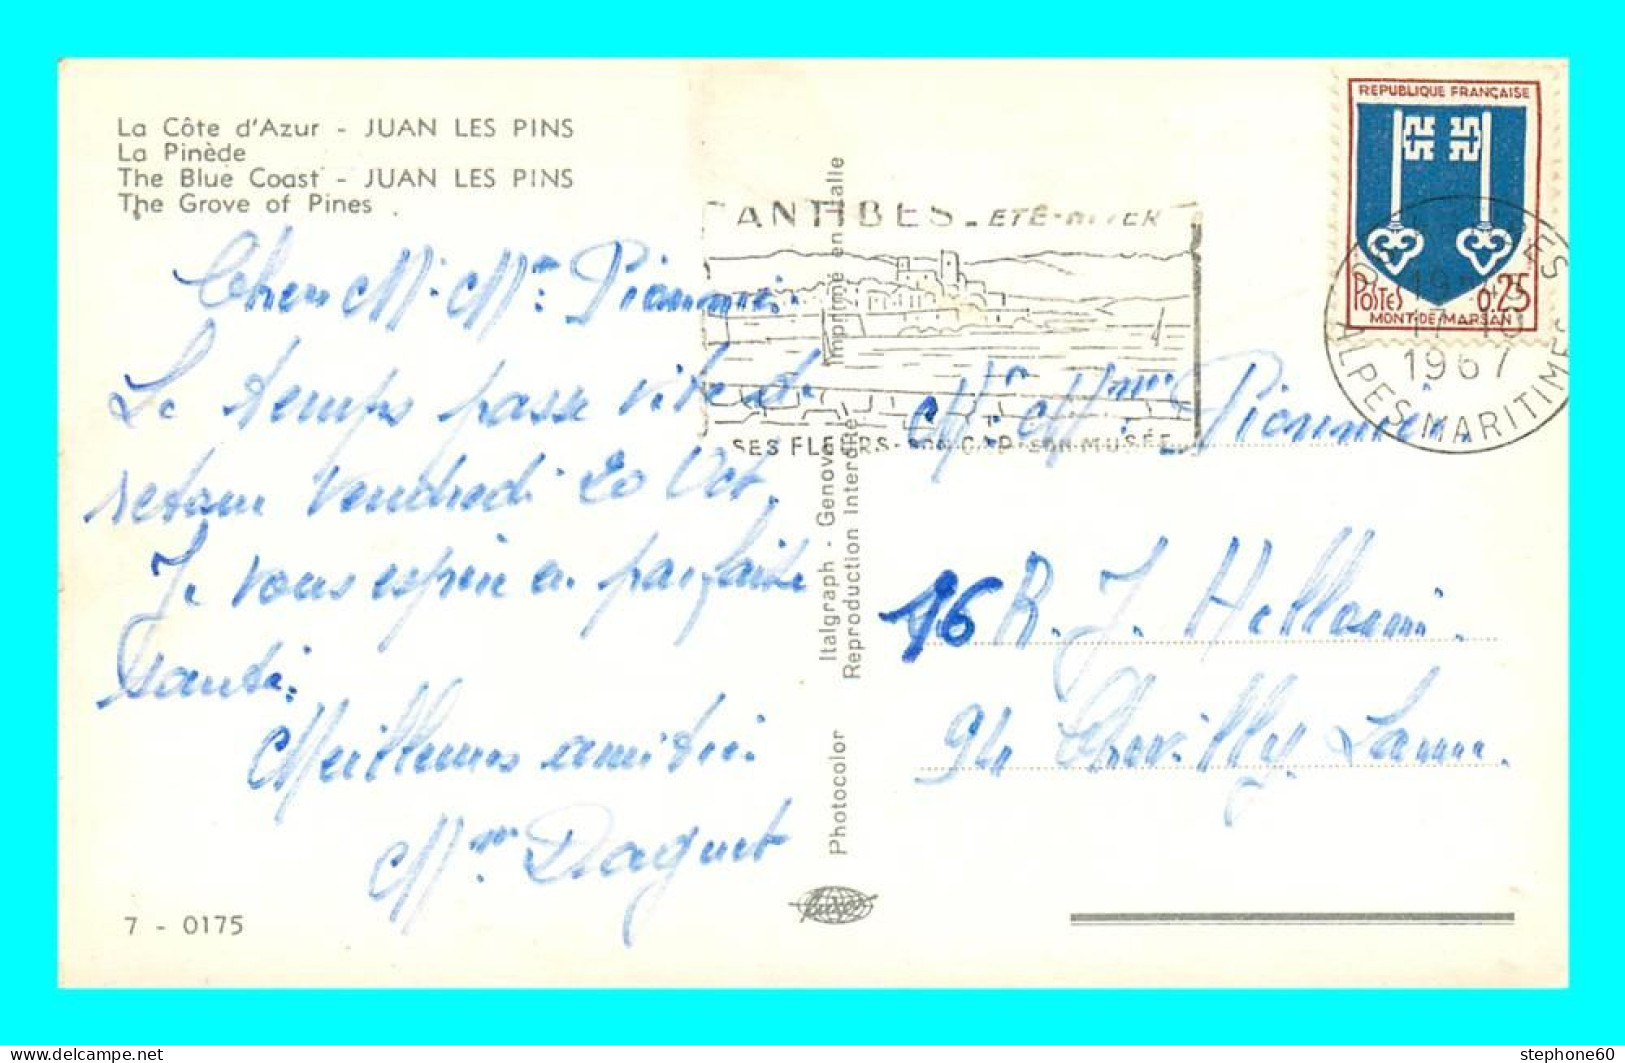 La Côte d'Azur - JUAN LES PINS
La Pinède
The Blue Coast - JUAN LES PINS
The Grove of Pines
REPUBLIQUE FRANÇAISE
POSTES 0.25
MONT-DE-MARSAN
ANTIBES - ÉTÉ-HIVER
SES FLEURS - SON CAP - SON MUSÉE
1967
ALPES-MARITIMES
Imprimé en Italie
Italgraph - Genova
Reproduction Interdite
Photocolor
M. Mme
Le temps passe vite de
retour Vendredi 20 Oct.
Je vous espère en parfaite
santé.
Meilleures amitiés
Mme Daguet
Mr Mme
16 R. J.
94 Chevilly. Larue.
7 - 0175
stephone60